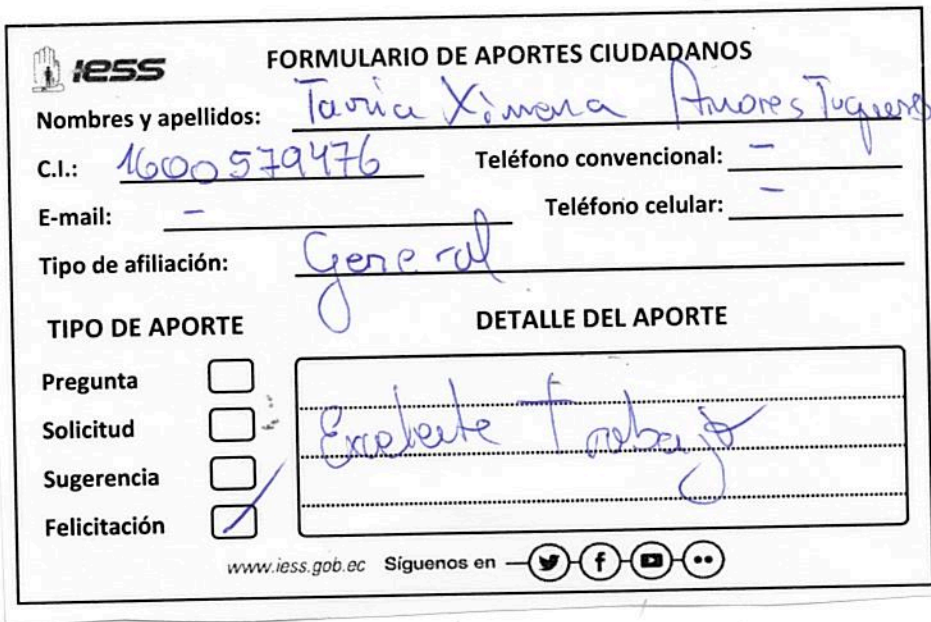 iess FORMULARIO DE APORTES CIUDADANOS
Nombres y apellidos: Tania Ximena Amores
C.I.: 1600579476 Teléfono convencional: -
E-mail: - Teléfono celular: -
Tipo de afiliación: General
TIPO DE APORTE DETALLE DEL APORTE
Pregunta
Solicitud
Sugerencia
Felicitación
Excelente Trabajo
www.iess.gob.ec Síguenos en